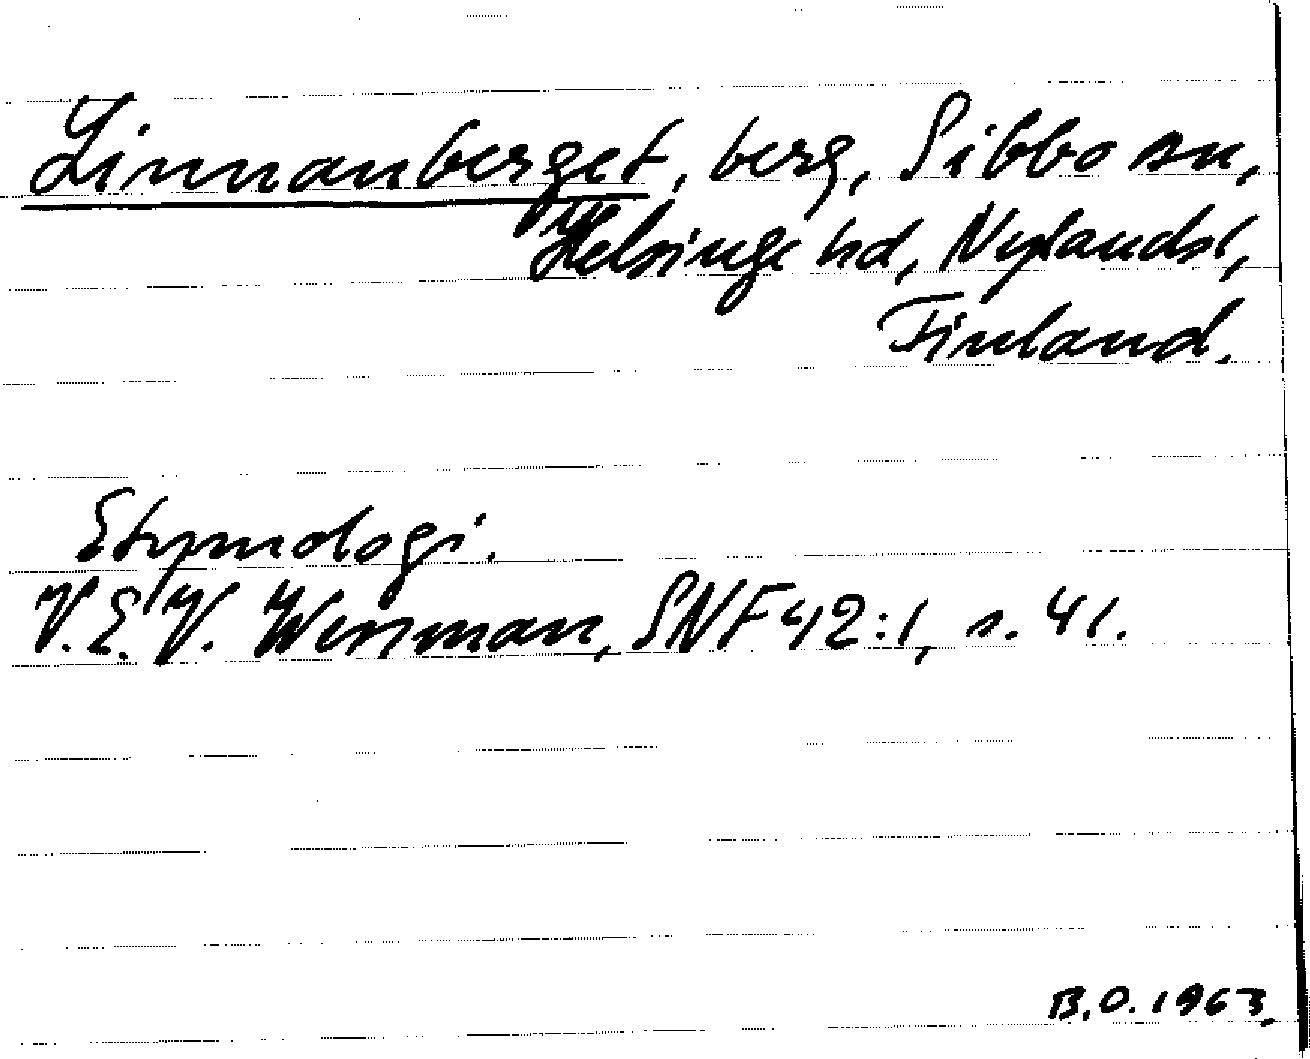 Linnanberget, berg, Sibbo sn,
Helsinge hd, Nylandsl,
Finland.
Etymologi.
V.E.V. Wessman, SNF 42:1, s. 41.
B.O. 1963.